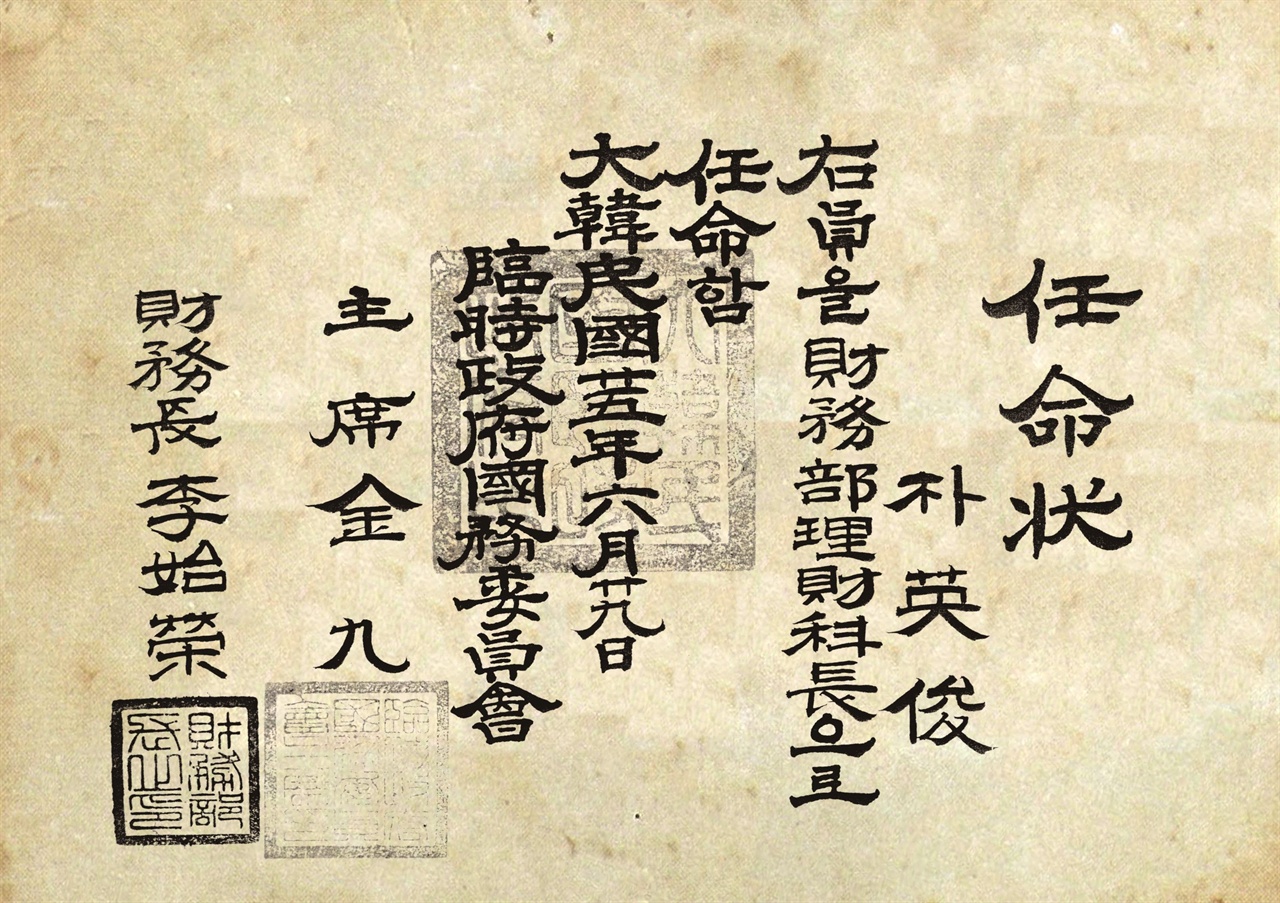 任命狀
朴英俊
右員을財務部理財科長으로
任命함
大韓民國廿五年六月廿九日
臨時政府國務委員會
主席金九
財務長李始榮
財務部